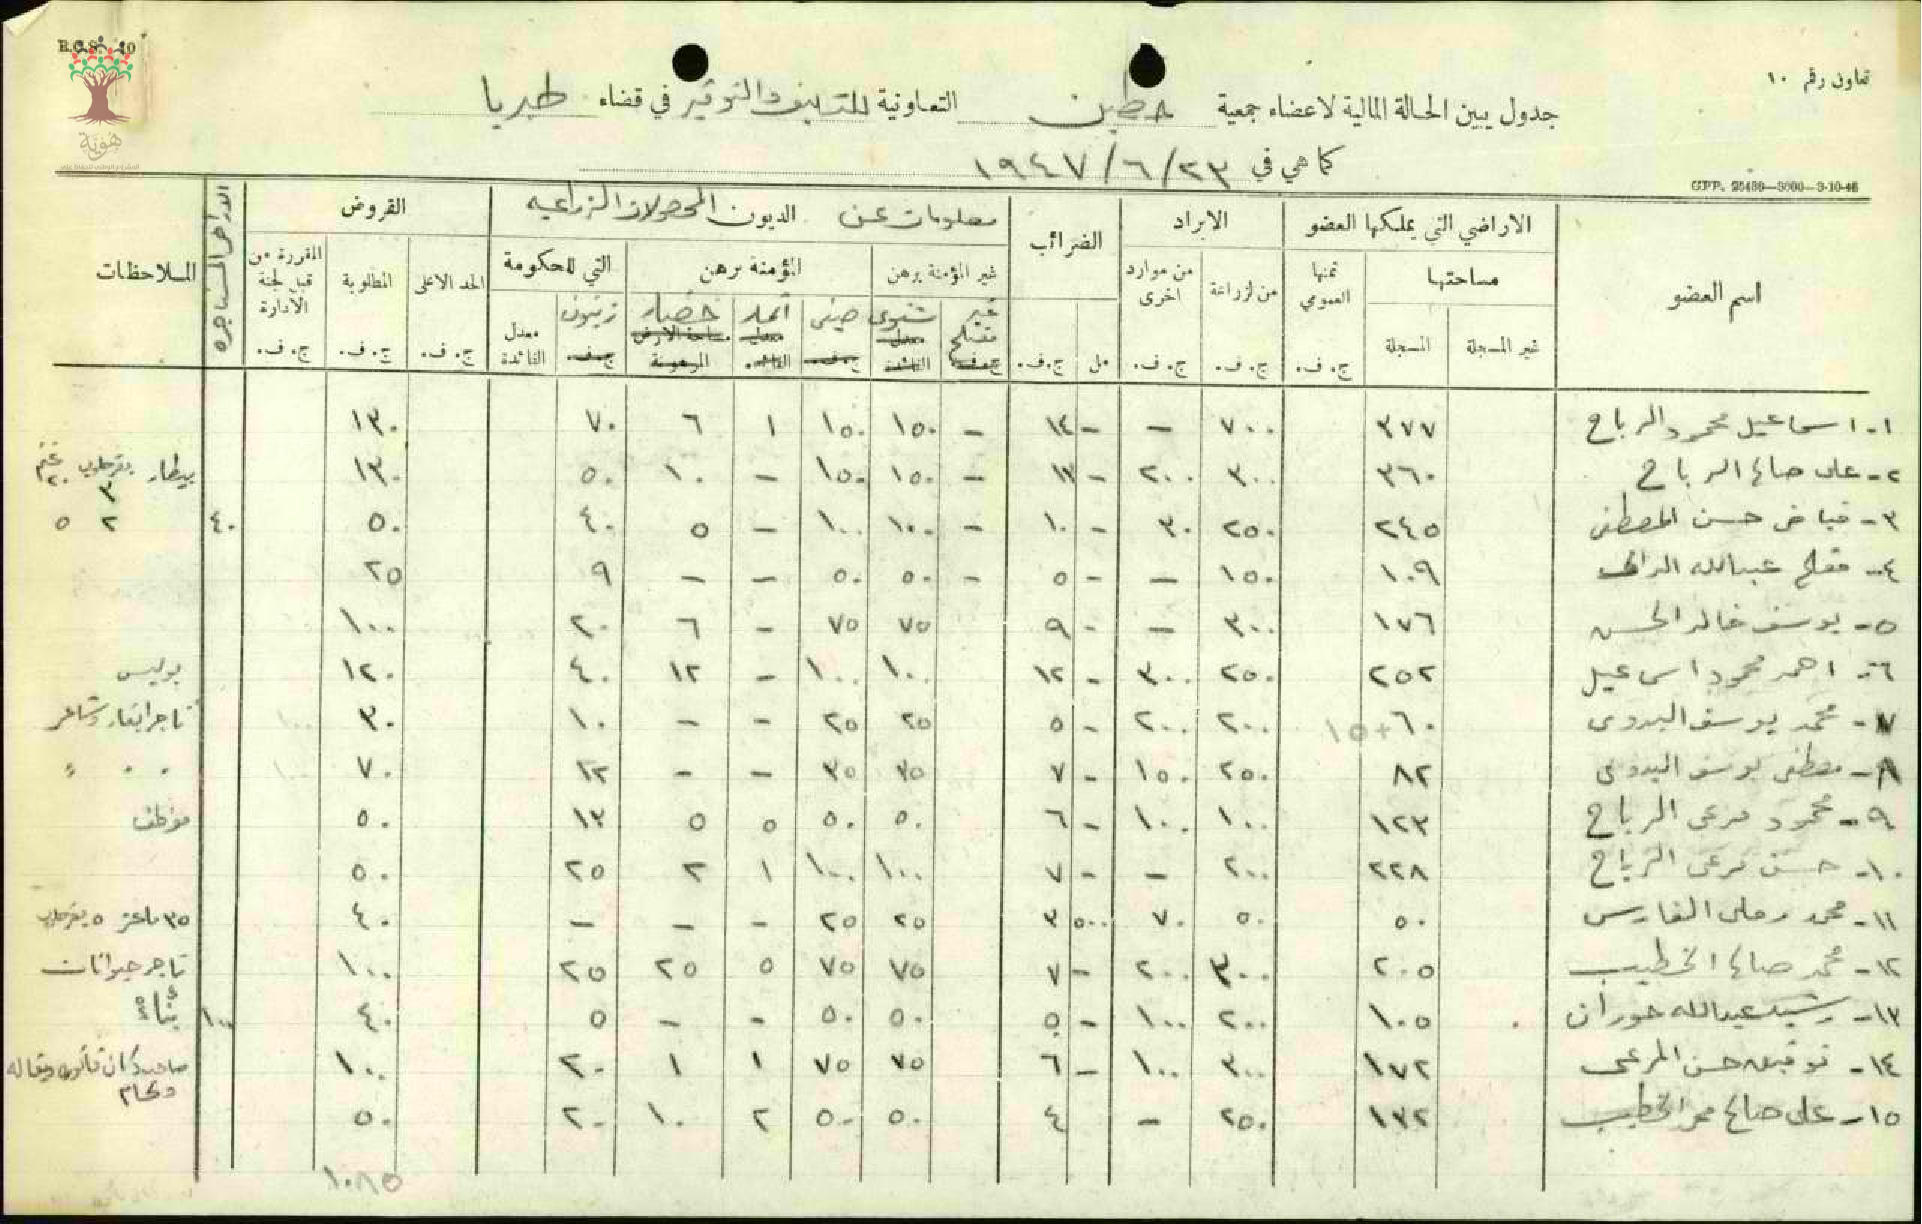 R.C.S. 10
تعاون رقم ١٠
جدول يبين الحالة المالية لاعضاء جمعية حطين التعاونية للتسليف والتوفير في قضاء طبريا
كما هي في ٢٣/٦/١٩٤٧
هُويّة
GPP. 25489—3000—3-10-46
اسم العضو الاراضي التي يملكها العضو الايراد الضرائب معلومات عن الديون المحصولات الزراعيه القروض الاراضي المستأجره الملاحظات
مساحتها ثمنها العمومي من الزراعة من موارد اخرى غير المؤمنة برهن المؤمنة برهن التي للحكومة الحد الاعلى المطلوبة المقررة من قبل لجنة الادارة
غير المسجلة المسجلة ج. ف. ج. ف. ج. ف. مل ج. ف. غير مفتلح شتوي صيفي خضار زيتون معدل الفائدة ج. ف. ج. ف. ج. ف.
١- اسماعيل محمود الرباح ٣٧٧ ٧٠٠ – – ١٤ – ١٥٠ ١٥٠ ١ ٦ ٧٠ ١٣٠
٢- علي صالح الرباح ٣٦٠ ٣٠٠ ٢٠٠ – – ١٥٠ ١٥٠ – ١٠ ٥٠ ١٣٠ بيطار بقر حلوب غنم
٣- فياض حسن المصطفى ٢٤٥ ٢٥٠ ٣٠ – ١٠ – ١٠٠ ١٠٠ – ٥ ٤٠ ٥٠ ٤٠ ٢ ٥
٤- مفلح عبدالله ١٠٩ ١٥٠ – – ٥ – ٥٠ ٥٠ – – ٩ ٢٥
٥- يوسف خالد الحسن ١٧٦ ٣٠٠ – - ٩ ٧٥ ٧٥ – ٦ ٢٠ ١٠٠
٦- احمد محمود اسماعيل ٢٥٢ ٢٥٠ ٣٠٠ - ١٢ ١٠٠ ١٠٠ – ١٢ ٤٠ ١٢٠ بوليس
٧- محمد يوسف البدوي ٦٠+١٥ ٢٠٠ ٢٠٠ - ٥ ٢٥ ٢٥ – – ١٠ ٣٠ ١٠٠ تاجر ابقار وشاعر
٨- مصطفى يوسف البدوي ٨٢ ٢٥٠ ١٥٠ - ٧ ٣٥ ٣٥ – – ١٢ ٧٠ ١٠٠ " " "
٩- محمود مرعي الرباح ١٢٣ ١٠٠ ١٠٠ - ٦ ٥٠ ٥٠ ٥ ٥ ١٣ ٥٠ موظف
١٠- حسن مرعي الرباح ٢٢٨ ٢٠٠ – - ٧ ١٠٠ ١٠٠ ١ ٢ ٢٥ ٥٠
١١- محمد الفارس ٥٠ ٥٠ ٧٠ ٥٠٠ ٣ ٢٥ ٢٥ – – – ٤٠ ٣٥ ماعز ٥ بقر حلوب
١٢- محمد صالح الخطيب ٢٠٥ ٣٠٠ ٢٠٠ - ٧ ٧٥ ٧٥ ٥ ٢٥ ٢٥ ١٠٠ تاجر حيوانات
١٣- رشيد عبدالله حوران ١٠٥ ٢٠٠ ١٠٠ - ٥ ٥٠ ٥٠ - - ٥ ٤٠ ١٠٠ بنّاء
١٤- توفيق حسن المرعي ١٧٢ ٣٠٠ ١٠٠ – ٦ ٧٥ ٧٥ ١ ١ ٢٠ ١٠٠ صاحب دكان وبقاله
ولحام
١٥- علي صالح محمد الخطيب ١٣٢ ٢٥٠ – ٤ ٥٠ ٥٠ ٢ ١٠ ٢٠ ٥٠
١٠٨٥